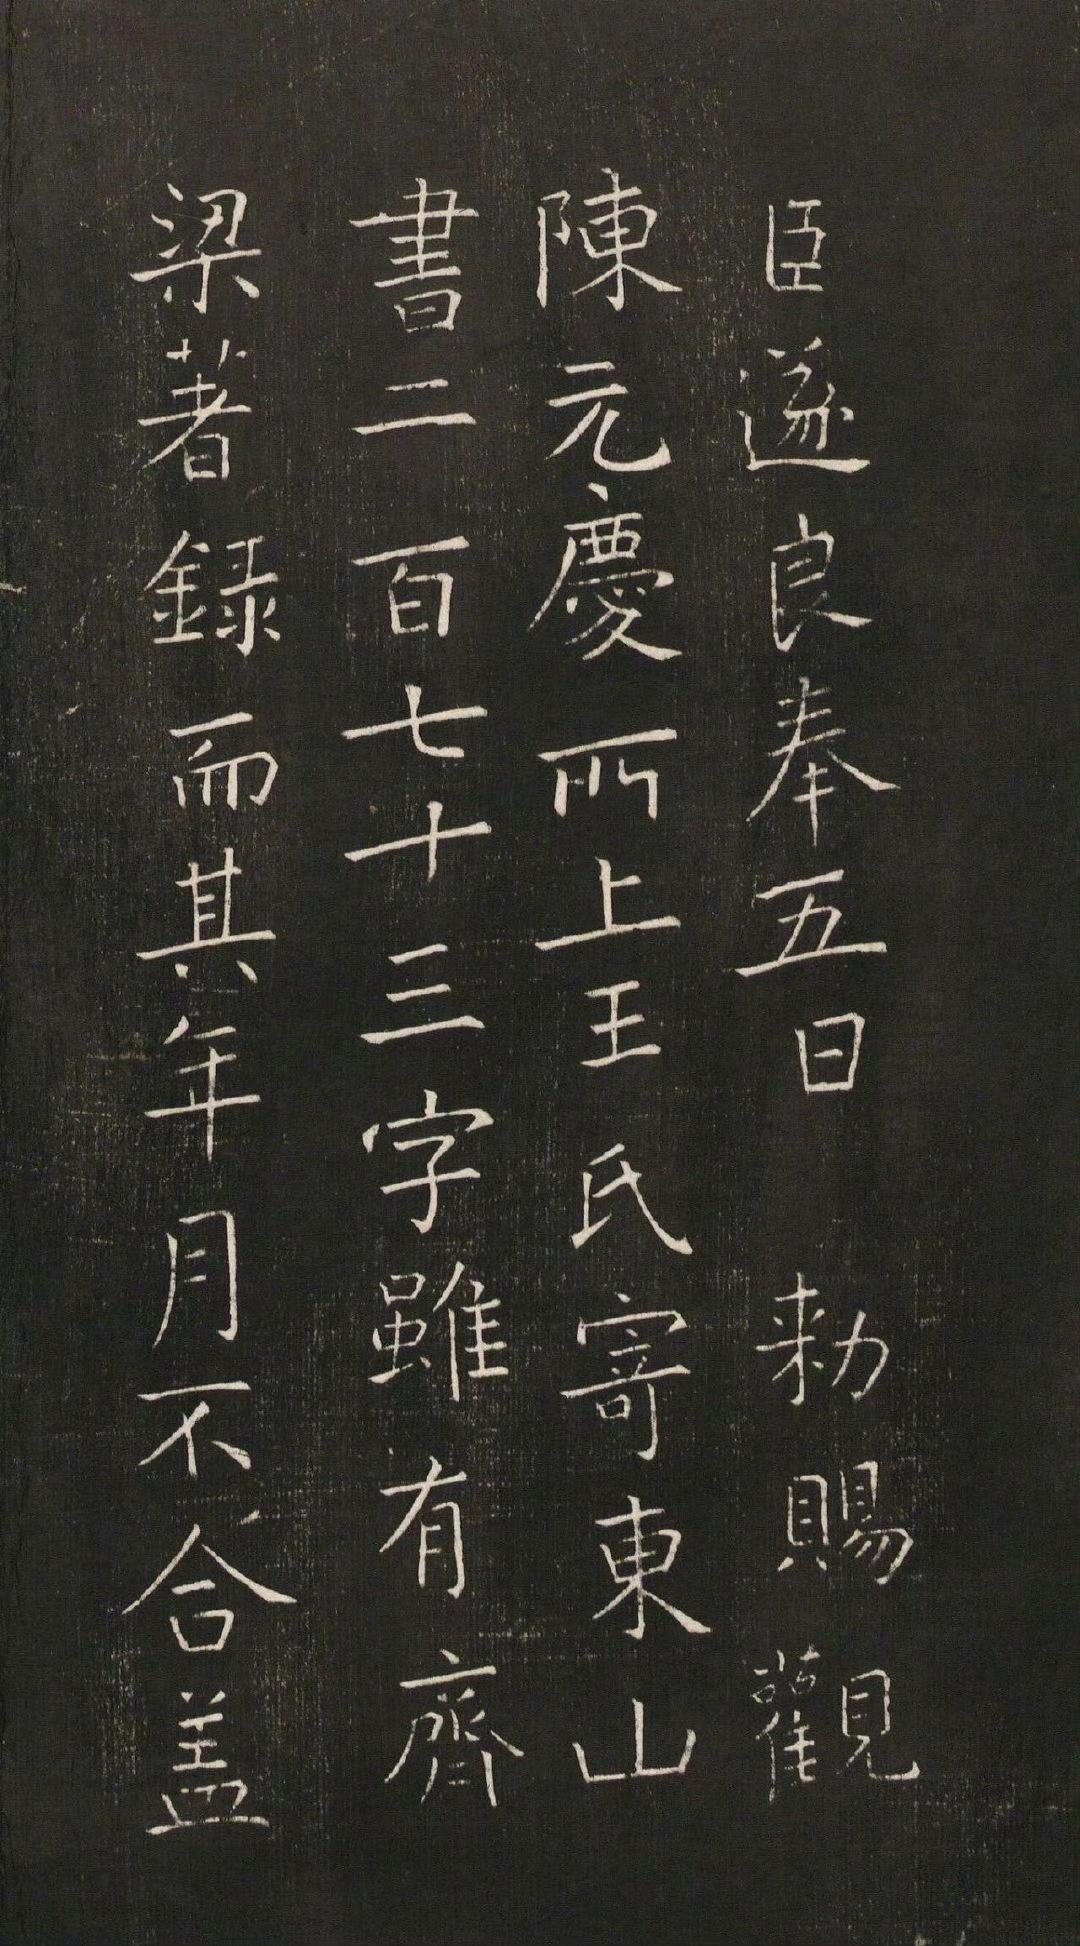 臣遂良奉五日 勑賜觀
陳元慶所上王氏寄東山
書二百七十三字雖有齊
梁著録而其年月不合盖